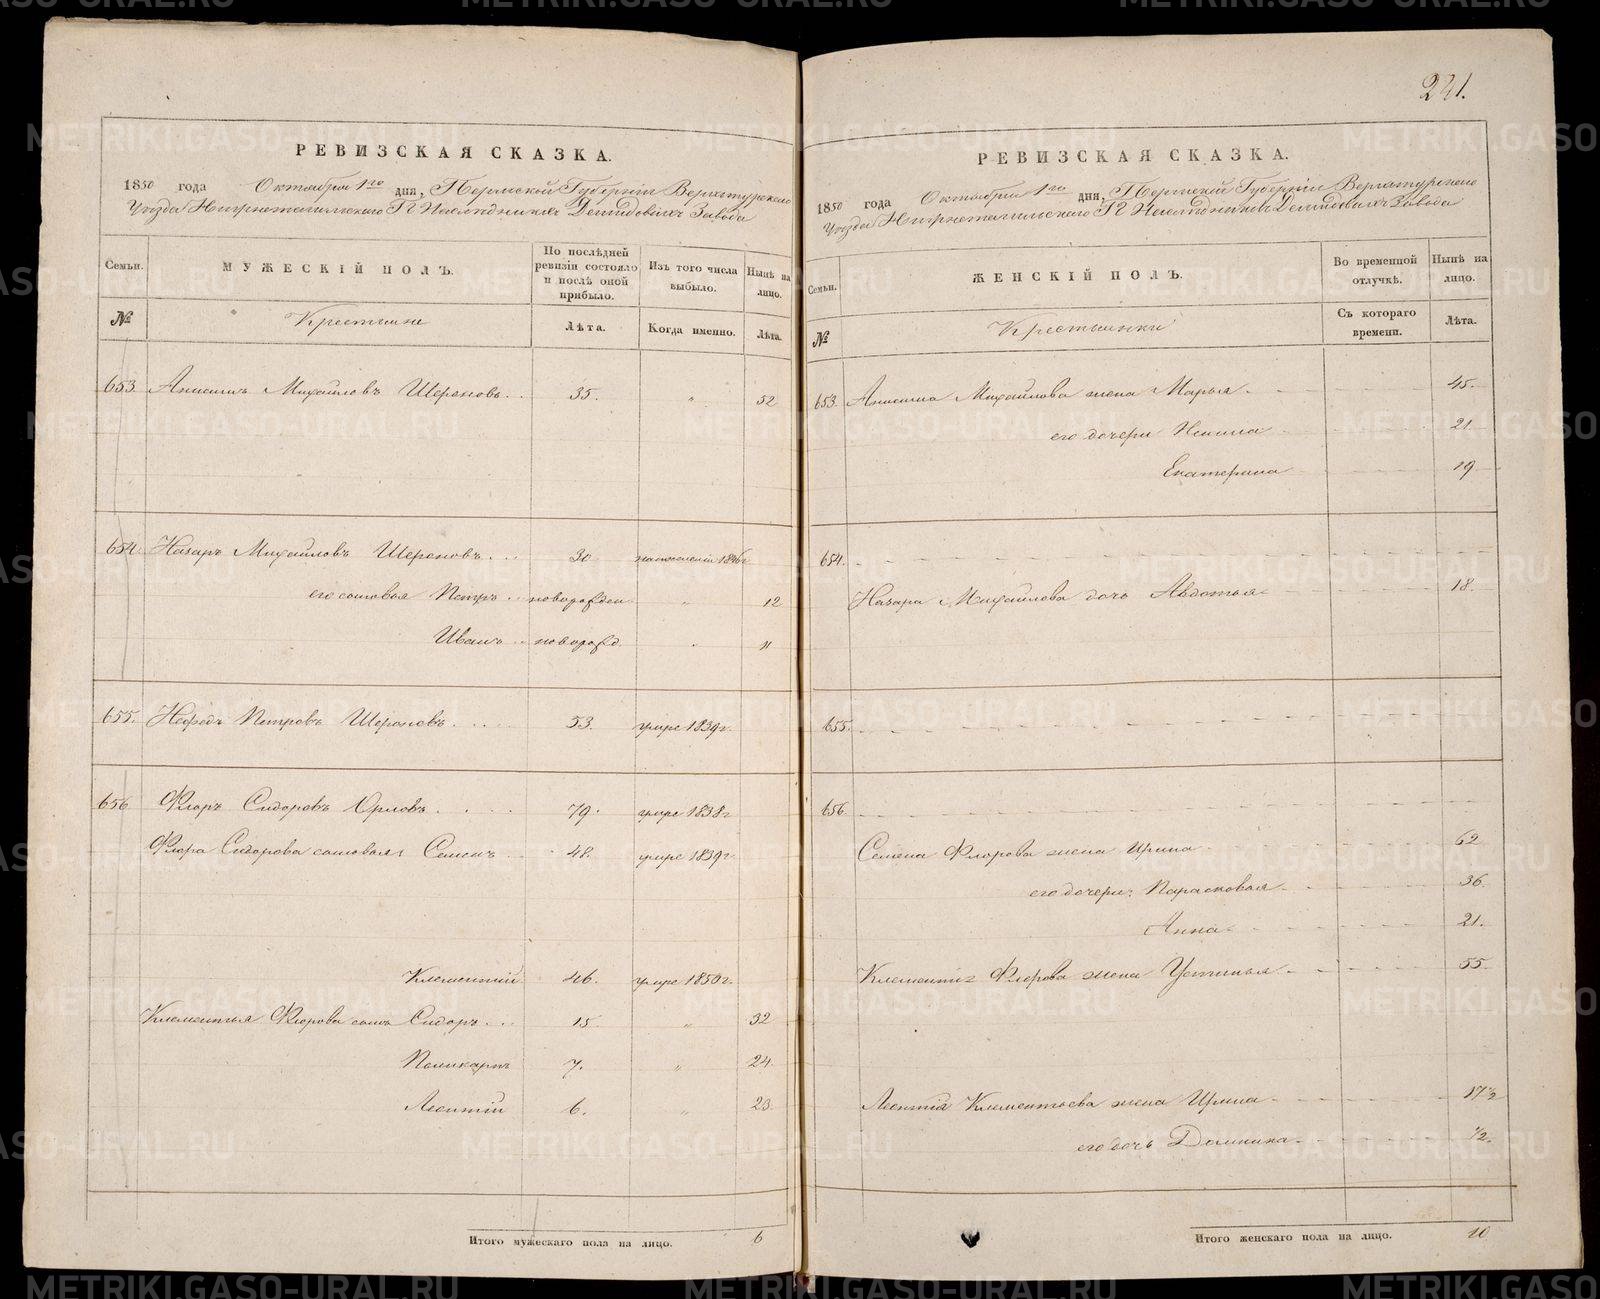 РЕВИЗСКАЯ СКАЗКА.
1850 года Октября 1го дня, Пермской Губернiи Верхотурскаго
Уѣзда Нижнетагильскаго Гг Наслѣдниковъ Демидовыхъ Завода
Семьи. МУЖЕСКIЙ ПОЛЪ. По послѣдней ревизiи состояло и послѣ оной прибыло. Изъ того числа выбыло. Нынѣ на лицо.
№ Крестьяне Лѣта. Когда именно. Лѣта.
653 Анисимъ Михайловъ 35. " 52
654 Назаръ Михайловъ 30 1846г
его сыновья Петръ новорожден " 12
Иванъ новорожд. " 11
655. Петровъ 53. умре 1839г.
656 Флоръ Сидоровъ Орловъ 79. умре 1838г
Флора Сидорова сыновья: Семенъ 48. умре 1839г.
Климентiй 46. умре 1850г.
Климентья Флорова сынъ Сидоръ 15 " 32
Поликарпъ 7. " 24.
Леонтiй 6. " 23.
Итого мужескаго пола на лицо. 6
221.
РЕВИЗСКАЯ СКАЗКА.
1850 года Октября 1го дня, Пермской Губернiи Верхотурскаго
Уѣзда Нижнетагильскаго Гг Наслѣдниковъ Демидовыхъ Завода
Семьи. ЖЕНСКIЙ ПОЛЪ. Во временной отлучкѣ. Нынѣ на лицо.
№ Крестьянки Съ котораго времени. Лѣта.
653. Анисима Михайлова жена Марья 45.
его дочери 21
Екатерина 19
654.
Назара Михайлова дочь Авдотья 18.
655.
656.
Семена Флорова жена Ирина 62
его дочери: Парасковья 36.
Анна 21.
Климентiя Флорова жена Устинья 55
Леонтiя Климентьева жена Ирина 17 1/2
его дочь Домника 1/2.
Итого женскаго пола на лицо. 10
METRIKI.GASO-URAL.RU